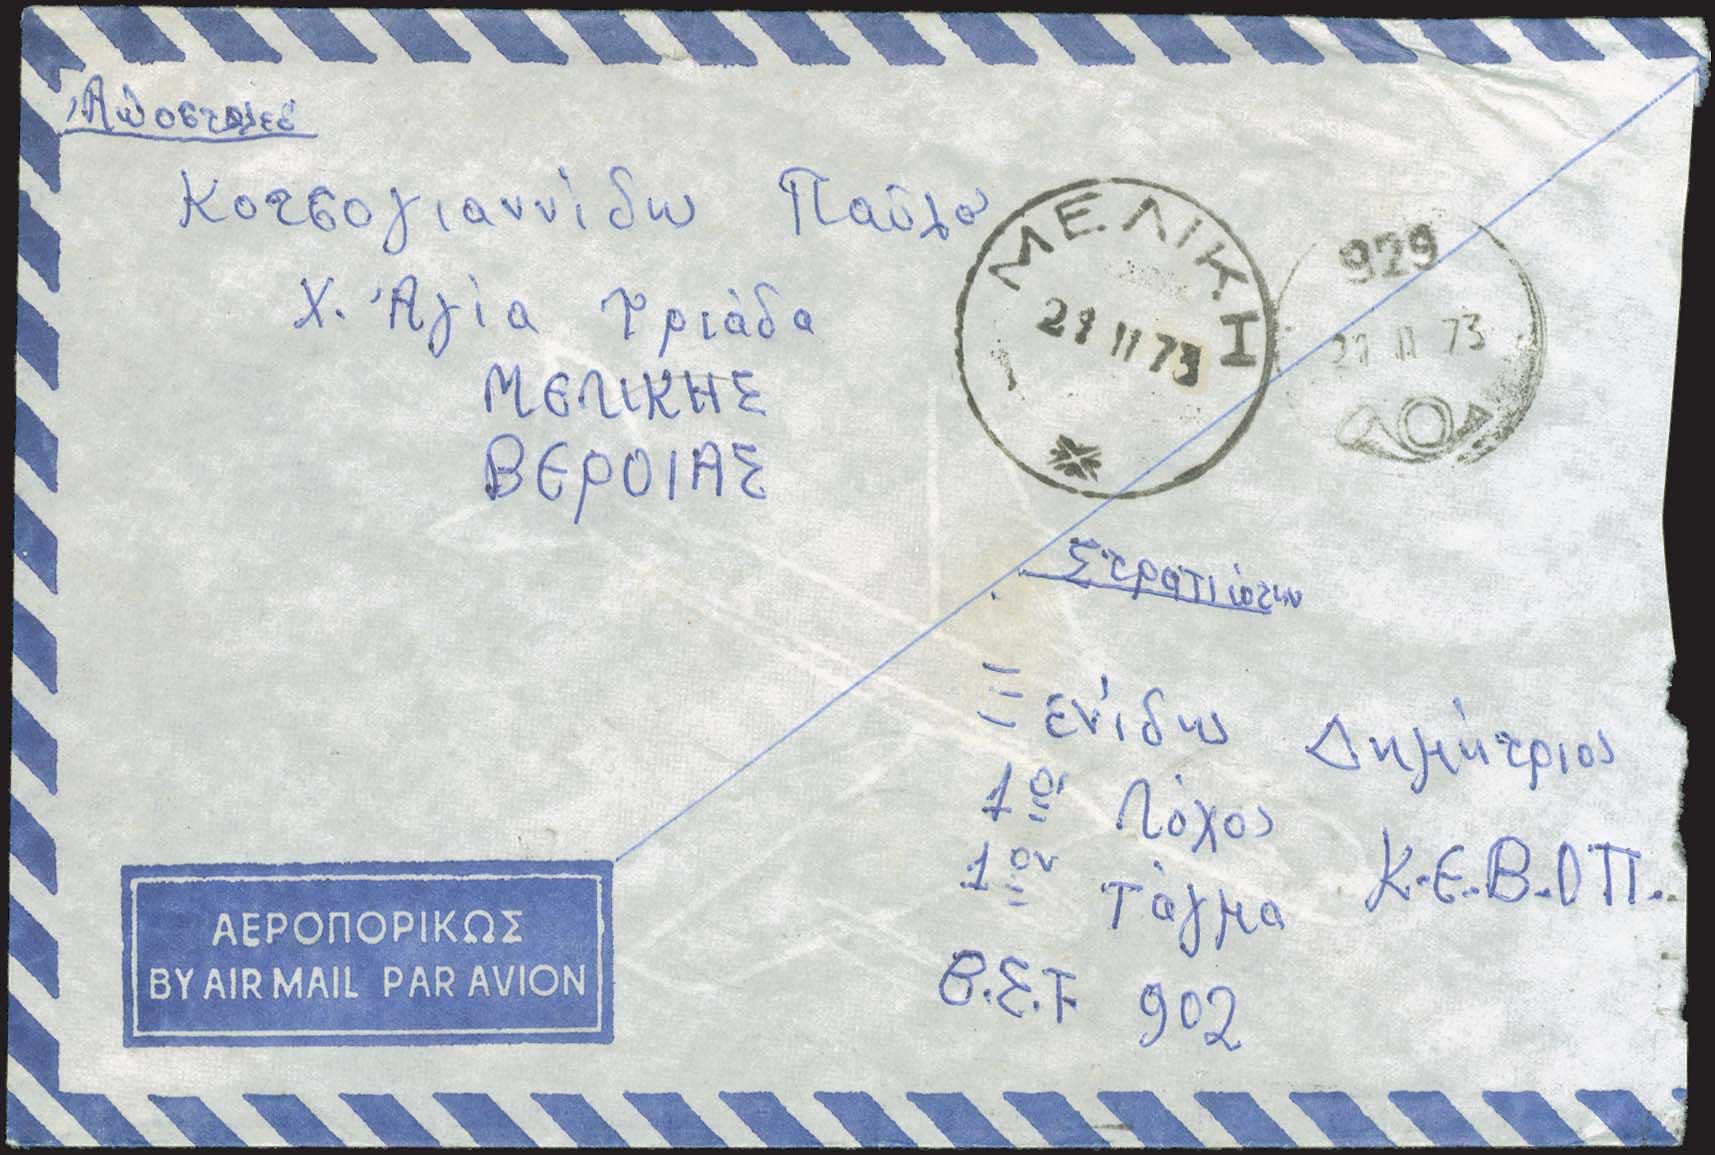 Ἀποστολεύς
Κοτσογιαννίδω Παῦλο
Χ. Ἁγία Τριάδα
ΜΕΛΙΚΗΣ
ΒΕΡΟΙΑΣ
ΜΕΛΙΚΗ
21 II 73
929
21 II 73
Στρατιώτην
Ξενίδω Δημήτριος
1ος Λόχος
1ον Τάγμα Κ.Ε.Β.Ο.Π.
Β.Σ.Τ 902
ΑΕΡΟΠΟΡΙΚΩΣ
BY AIR MAIL PAR AVION